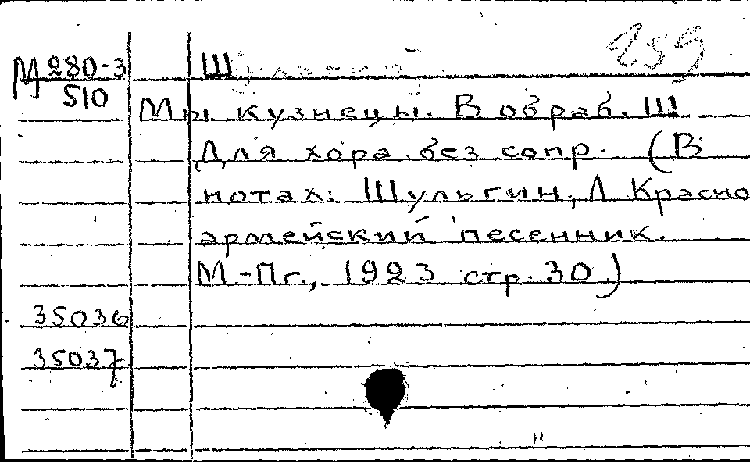 М 280-3
510
Ш
259
Мы кузнецы. В обраб. Ш
Для хора без сопр. (В
нотах: Шульгин, Л Красно
армейский песенник.
М.-Пг., 1923 стр. 30.)
35036
35037